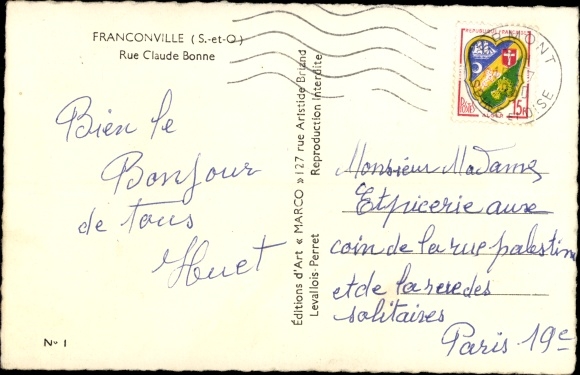 FRANCONVILLE (S.-et-O.)
Rue Claude Bonne
Bien le
Bonjour
de tous
Huet
N° 1
Editions d'Art « MARCO » 127 rue Aristide Briand
Levallois-Perret
Reproduction Interdite
REPUBLIQUE FRANÇAISE
15F
ALGER
MONT
OISE
Monsieur Madame,
Etpicerie aux
coin de la rue palestine
et de la rue des
solitaires
Paris 19e